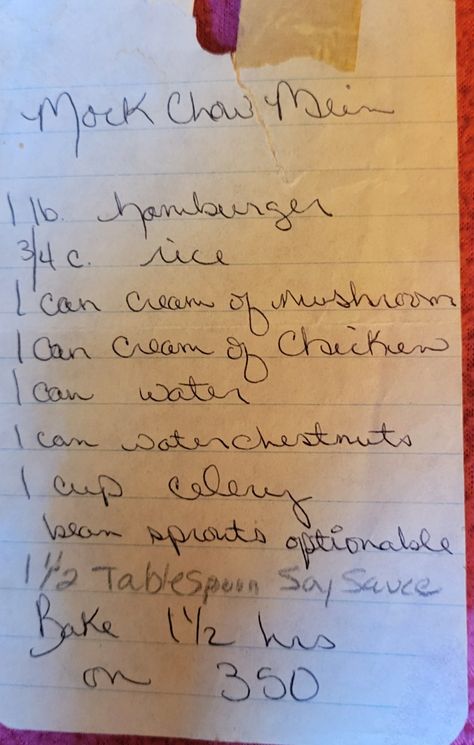 Mock Chow Mein
1 lb. hamburger
3/4 c. rice
1 can cream of mushroom
1 can cream of chicken
1 can water
1 can waterchestnuts
1 cup celery
bean sprouts optionable
1 1/2 Tablespoon Soy Sauce
Bake 1 1/2 hrs
on 350